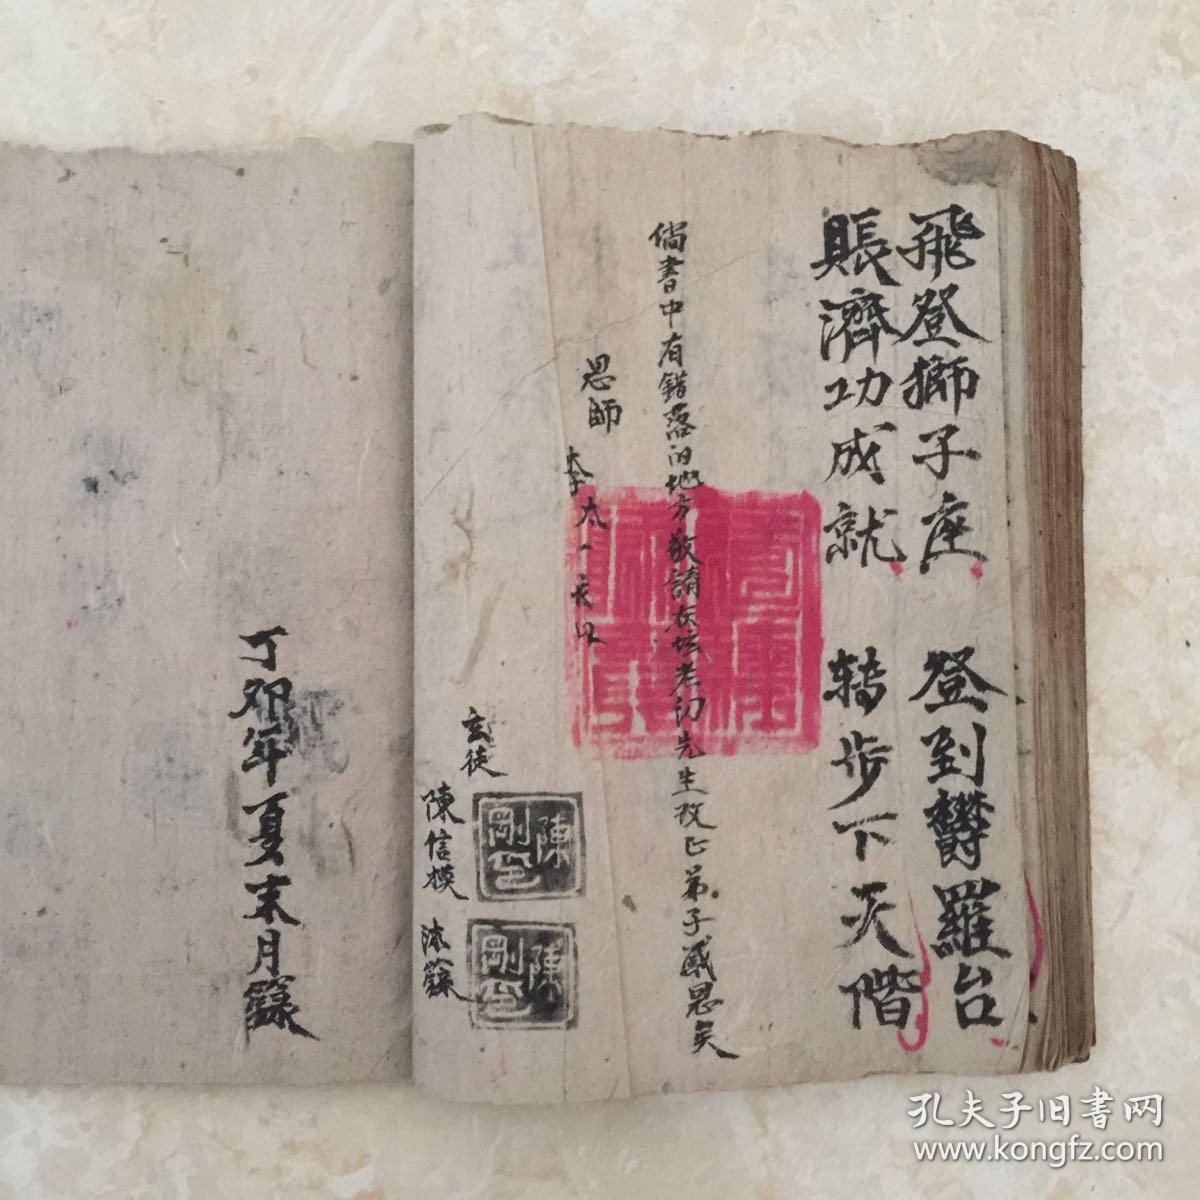 飛登獅子座 登到欝羅台
賬濟功成就 轉步下天階
倘書中有錯落的地方敬請友坛老幼先生改正弟子感恩矣
恩師
李太一
玄徒
陳信模 沐籙
陳剛印
陳剛印
丁卯年夏末月籙
孔夫子旧书网
www.kongfz.com